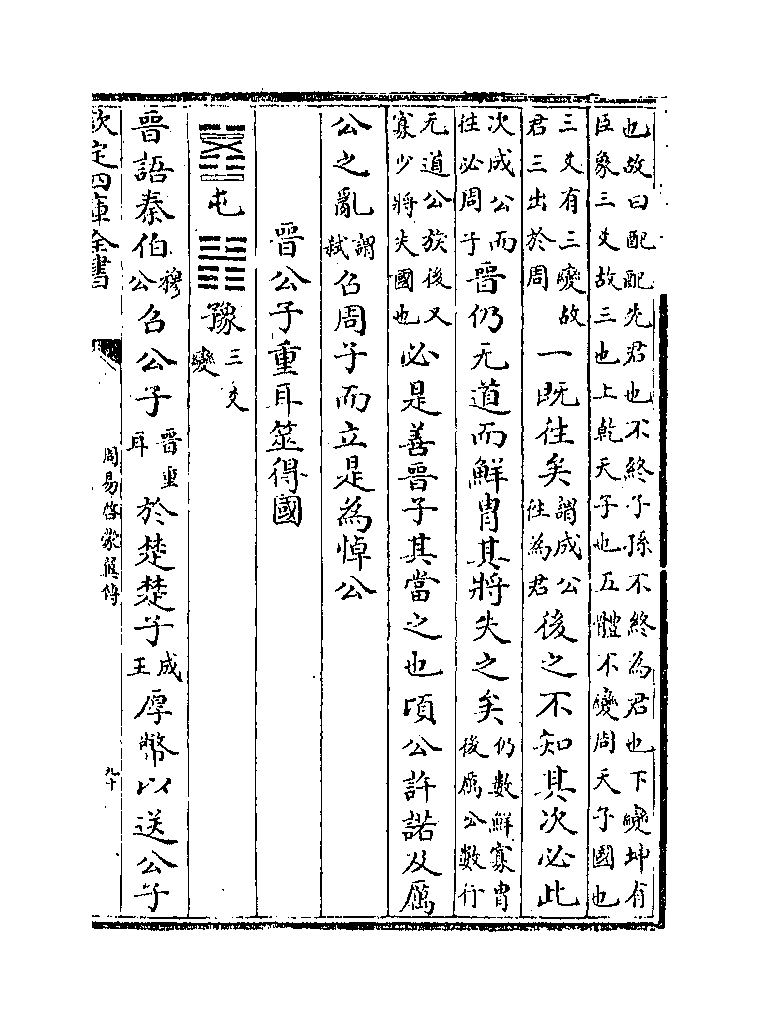 也故曰配配先君也不終子孫不終為君也下變坤有
臣象三爻故三也上乾天子也五體不變周天子國也
三爻有三變故君三出於周一既往矣謂成公往為君後之不知其次必此
次成公而往必周子晉仍无道而鮮胄其將失之矣仍數鮮寡胄後厲公數行
无道公族後又寡少將失國也必是善晉子其當之也頃公許諾及厲
公之亂謂弑召周子而立是為悼公
晉公子重耳筮得國
屯豫三爻變
晉語秦伯穆公召公子晉重耳於楚楚子成王厚幣以送公子
欽定四庫全書
周易啓蒙翼傳
九十